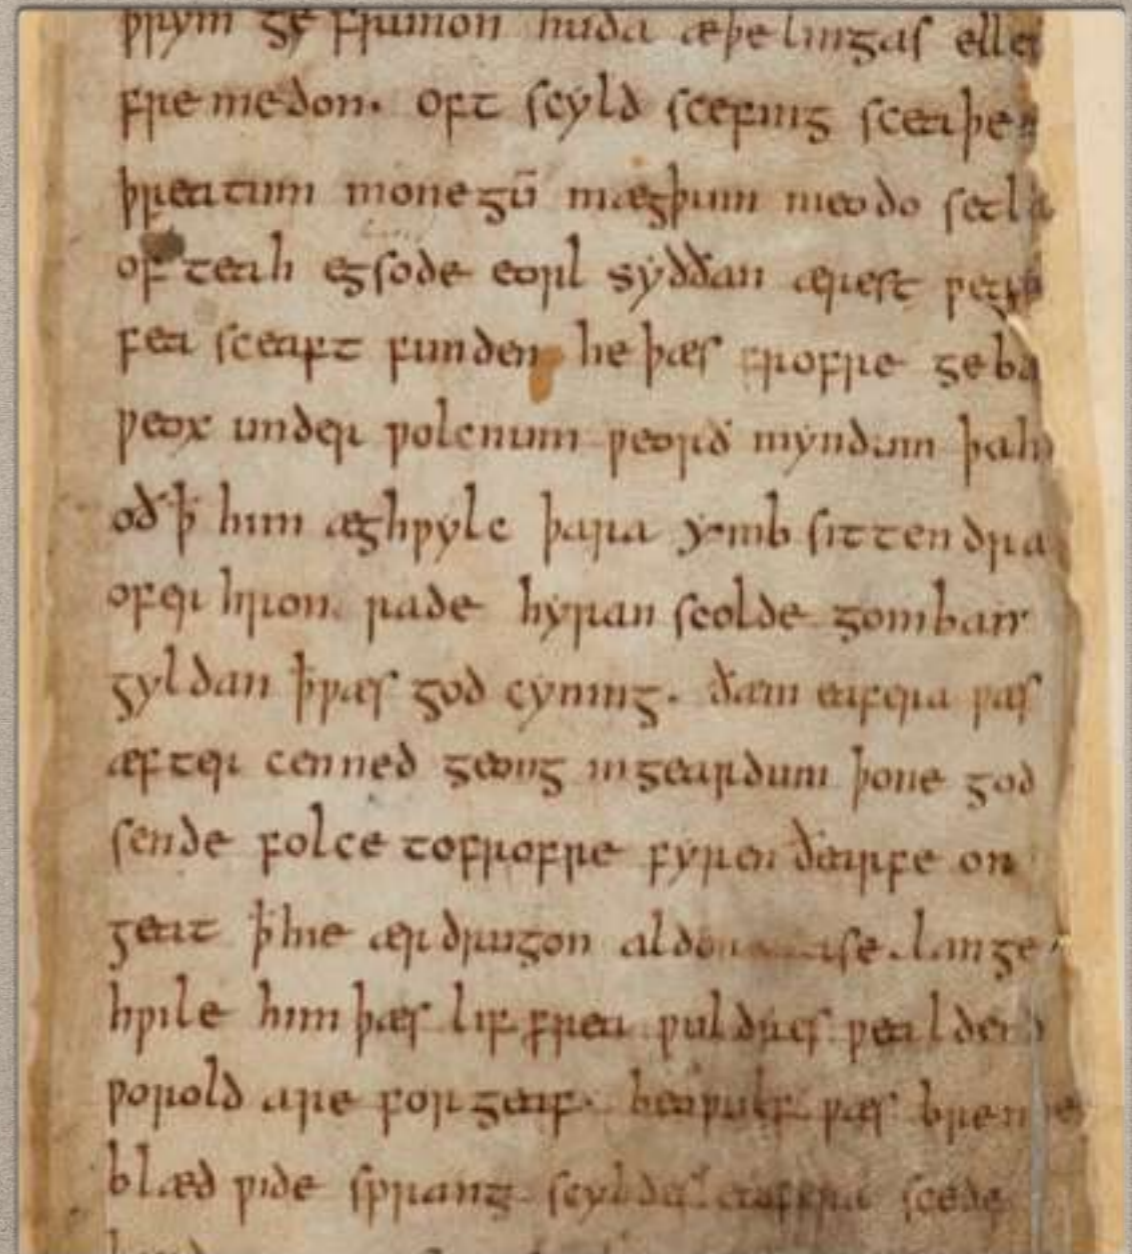 þrym ge frunon huða æþelingas elle
fremedon. oft scyld scefing sceaþe
þreatum monegū mægþum meodo setla
of teah egsode eorl syððan ærest
fea sceaft funden he þæs frofre geba
ƿeox under ƿolcnum ƿeorð myndum þah
oð ꝥ him æghƿylc þara ymb sittendra
ofer hron rade hyran scolde gomban
gyldan ꝥ ƿæs god cyning. ðæm eafera ƿæs
æfter cenned geong ingeardum þone god
sende folce tofrofre fyren ðearfe on
geat ꝥ hie ær drugon lange
hƿile him þæs lif frea ƿuldres ƿealdend
ƿorold are forgeaf. beoƿulf ƿæs breme
blæd ƿide sprang scyldes eafera scede